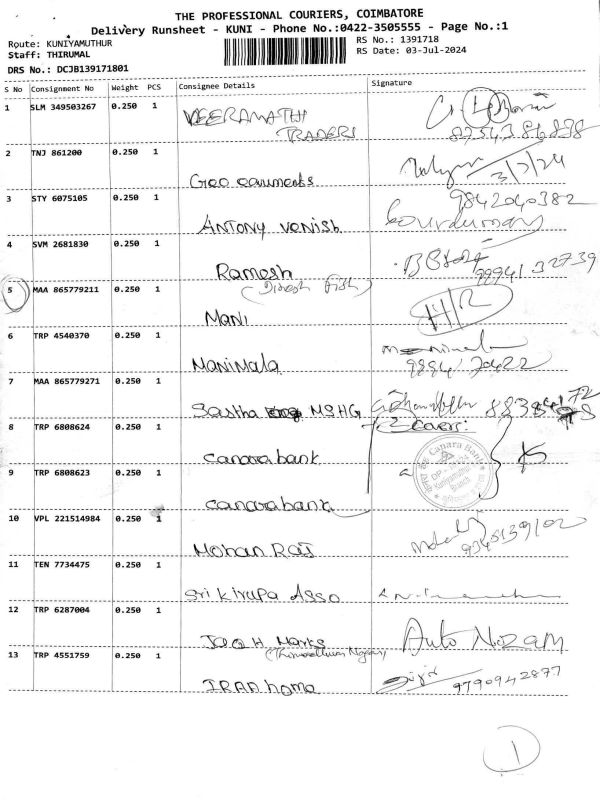 THE PROFESSIONAL COURIERS, COIMBATORE
Delivery Runsheet - KUNI - Phone No.:0422-3505555 - Page No.:1
Route: KUNIYAMUTHUR
RS No.: 1391718
Staff: THIRUMAL
RS Date: 03-Jul-2024
DRS No.: DCJB139171801
S No Consignment No Weight PCS Consignee Details Signature
1 SLM 349503267 0.250 1 VEERAMATHI
TRADERS
2 TNJ 861200 0.250 1
3/7/24
Geo
3 STY 6075105 0.250 1 9842040382
ANTONY venish
4 SVM 2681830 0.250 1
Ramesh 99941 32739
5 MAA 865779211 0.250 1 (Dinesh Fish)
MANI H/R
6 TRP 4540370 0.250 1
Manimala
7 MAA 865779271 0.250 1
Sastha MSHG
8 TRP 6808624 0.250 1 2 Cover:
canara bank Canara Bank
9 TRP 6808623 0.250 1 Branch
canara bank
10 VPL 221514984 0.250 1
Mohan Raj
11 TEN 7734475 0.250 1
Sri Kirupa Asso
12 TRP 6287004 0.250 1
JAQH Auto NIZAM
13 TRP 4551759 0.250 1
IRAA home 9790942877
1